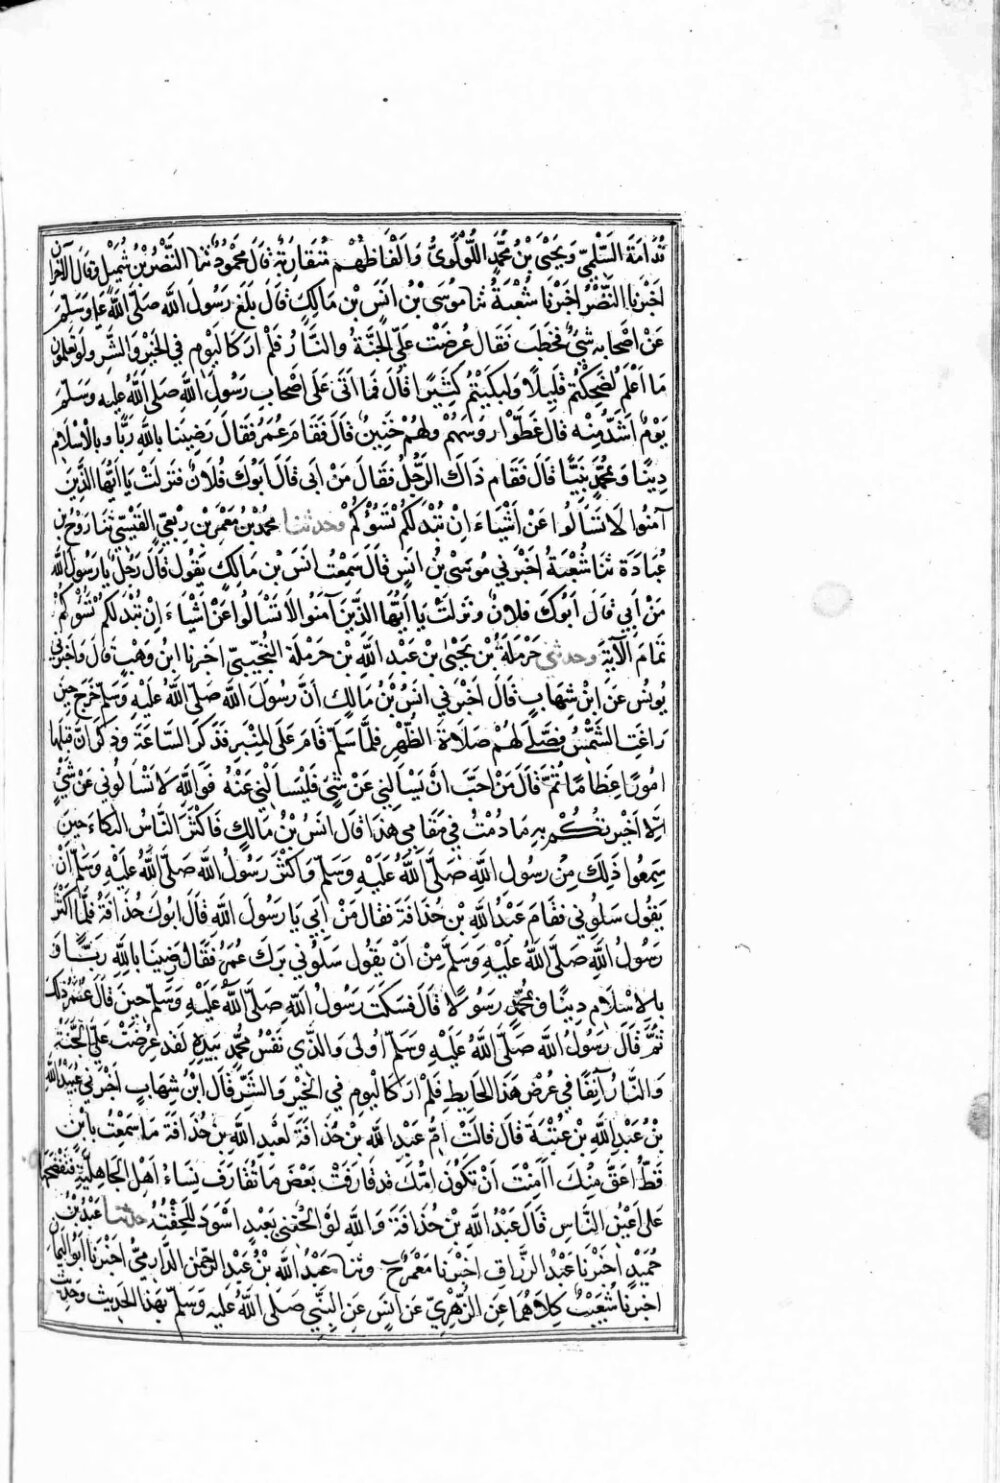 قُدَامَةَ السُّلَمِيُّ وَيَحْيَى بْنُ مُحَمَّدٍ اللُّؤْلُؤِيُّ وَأَلْفَاظُهُمْ مُتَقَارِبَةٌ قَالَ مَحْمُودٌ ثنا النَّضْرُ بْنُ شُمَيْلٍ وَقَالَ الآخَرَانِ
أَخْبَرَنَا النَّضْرُ أَخْبَرَنَا شُعْبَةُ ثنا مُوسَى بْنُ أَنَسٍ عَنْ أَنَسِ بْنِ مَالِكٍ قَالَ بَلَغَ رَسُولَ اللَّهِ صَلَّى اللَّهُ عليه وَسَلَّمَ
عَنْ أَصْحَابِهِ شَيْءٌ فَخَطَبَ فَقَالَ عُرِضَتْ عَلَيَّ الْجَنَّةُ وَالنَّارُ فَلَمْ أَرَ كَالْيَوْمِ فِي الْخَيْرِ وَالشَّرِّ وَلَوْ تَعْلَمُونَ
مَا أَعْلَمُ لَضَحِكْتُمْ قَلِيلًا وَلَبَكَيْتُمْ كَثِيرًا قَالَ فَمَا أَتَى عَلَى أَصْحَابِ رَسُولِ اللَّهِ صَلَى اللَّهُ عليه وَسَلَّمَ
يَوْمٌ أَشَدُّ مِنْهُ قَالَ غَطَّوْا رؤسَهُمْ وَلَهُمْ خَنِينٌ قَالَ فَقَامَ عُمَرُ فَقَالَ رَضِينَا بِاللَّهِ رَبًّا وَبِالْإِسْلَامِ
دِينًا وَبِمُحَمَّدٍ نَبِيًّا قَالَ فَقَامَ ذَاكَ الرَّجُلُ فَقَالَ مَنْ أَبِي قَالَ أَبُوكَ فُلَانٌ فَنَزَلَتْ يَا أَيُّهَا الَّذِينَ
آمَنُوا لَا تَسْأَلُوا عَنْ أَشْيَاءَ إِنْ تُبْدَ لَكُمْ تَسُؤْكُمْ وحدثنا مُحَمَّدُ بْنُ مَعْمَرِ بْنِ رِبْعِيٍّ الْقَيْسِيُّ ثَنَا رَوْحُ بْنُ
عُبَادَةَ ثنا شُعْبَةُ أَخْبَرَنِي مُوسَى بْنُ أَنَسٍ قَالَ سَمِعْتُ أَنَسَ بْنَ مَالِكٍ يَقُولُ قَالَ رَجُلٌ يَا رَسُولَ اللَّهِ
مَنْ أَبِي قَالَ أَبُوكَ فُلَانٌ وَنَزَلَتْ يَا أَيُّهَا الَّذِينَ آمَنُوا لَا تَسْأَلُوا عَنْ أَشْيَاءَ إِنْ تُبْدَ لَكُمْ تَسُؤْكُمْ
تَمَامَ الْآيَةِ وحدثني حَرْمَلَةُ بْنُ يَحْيَى بْنِ عَبْدِ اللَّهِ بْنِ حَرْمَلَةَ التُّجِيبِيُّ أَخْبَرَنَا ابْنُ وَهْبٍ قَالَ وَأَخْبَرَنِي
يُونُسُ عَنِ ابْنِ شِهَابٍ قَالَ أَخْبَرَنِي أَنَسُ بْنُ مَالِكٍ أَنَّ رَسُولَ اللَّهِ صَلَّى اللَّهُ عَلَيْهِ وَسَلَّمَ خَرَجَ حِينَ
زَاغَتِ الشَّمْسُ فَصَلَّى لَهُمْ صَلَاةَ الظُّهْرِ فَلَمَّا سَلَّمَ قَامَ عَلَى الْمِنْبَرِ فَذَكَرَ السَّاعَةَ وَذَكَرَ أَنَّ قَبْلَهَا
أُمُورًا عِظَامًا ثُمَّ قَالَ مَنْ أَحَبَّ أَنْ يَسْأَلَنِي عَنْ شَيْءٍ فَلْيَسْأَلْنِي عَنْهُ فَوَاللَّهِ لَا تَسْأَلُونِي عَنْ شَيْءٍ
إِلَّا أَخْبَرْتُكُمْ بِهِ مَا دُمْتُ فِي مَقَامِي هَذَا قَالَ أَنَسُ بْنُ مَالِكٍ فَأَكْثَرَ النَّاسُ الْبُكَاءَ حِينَ
سَمِعُوا ذَلِكَ مِنْ رَسُولِ اللَّهِ صَلَّى اللَّهُ عَلَيْهِ وَسَلَّمَ وَأَكْثَرَ رَسُولُ اللَّهِ صَلَّى اللَّهُ عَلَيْهِ وَسَلَّمَ أَنْ
يَقُولَ سَلُونِي فَقَامَ عَبْدُ اللَّهِ بْنُ حُذَافَةَ فَقَالَ مَنْ أَبِي يَا رَسُولَ اللَّهِ قَالَ أَبُوكَ حُذَافَةُ فَلَمَّا أَكْثَرَ
رَسُولُ اللَّهِ صَلَّى اللَّهُ عَلَيْهِ وَسَلَّمَ مِنْ أَنْ يَقُولَ سَلُونِي بَرَكَ عُمَرُ فَقَالَ رَضِينَا بِاللَّهِ رَبًّا وَ
بِالْإِسْلَامِ دِينًا وَبِمُحَمَّدٍ رَسُولًا قَالَ فَسَكَتَ رَسُولُ اللَّهِ صَلَّى اللَّهُ عَلَيْهِ وَسَلَّمَ حِينَ قَالَ عُمَرُ ذَلِكَ
ثُمَّ قَالَ رَسُولُ اللَّهِ صَلَّى اللَّهُ عَلَيْهِ وَسَلَّمَ أَوْلَى وَالَّذِي نَفْسُ مُحَمَّدٍ بِيَدِهِ لَقَدْ عُرِضَتْ عَلَيَّ الْجَنَّةُ
وَالنَّارُ آنِفًا فِي عُرْضِ هَذَا الْحَايِطِ فَلَمْ أَرَ كَالْيَوْمِ فِي الْخَيْرِ وَالشَّرِّ قَالَ ابْنُ شِهَابٍ أَخْبَرَنِي عُبَيْدُ اللَّهِ
بْنُ عَبْدِ اللَّهِ بْنِ عُتْبَةَ قَالَ قَالَتْ أُمُّ عَبْدِ اللَّهِ بْنِ حُذَافَةَ لِعَبْدِ اللَّهِ بْنِ حُذَافَةَ مَا سَمِعْتُ بِابْنٍ
قَطُّ أَعَقَّ مِنْكَ أَأَمِنْتَ أَنْ تَكُونَ أُمُّكَ قَدْ قَارَفَتْ بَعْضَ مَا تُقَارِفُ نِسَاءُ أَهْلِ الْجَاهِلِيَّةِ فَتَفْضَحَهَا
عَلَى أَعْيُنِ النَّاسِ قَالَ عَبْدُ اللَّهِ بْنُ حُذَافَةَ وَاللَّهِ لَوْ أَلْحَقَنِي بِعَبْدٍ أَسْوَدَ لَلَحِقْتُهُ حدثنا عَبْدُ بْنُ
حُمَيْدٍ أَخْبَرَنَا عَبْدُ الرَّزَّاقِ أَخْبَرَنَا مَعْمَرٌ ح وثنا عَبْدُ اللَّهِ بْنُ عَبْدِ الرَّحْمَنِ الدَّارِمِيُّ أَخْبَرَنَا أَبُو الْيَمَانِ
أَخْبَرَنَا شُعَيْبٌ كِلَاهُمَا عَنِ الزُّهْرِيِّ عَنْ أَنَسٍ عَنِ النَّبِيِّ صَلَّى اللَّهُ عَلَيْهِ وَسَلَّمَ بِهَذَا الْحَدِيثِ وَحَدِيثِ